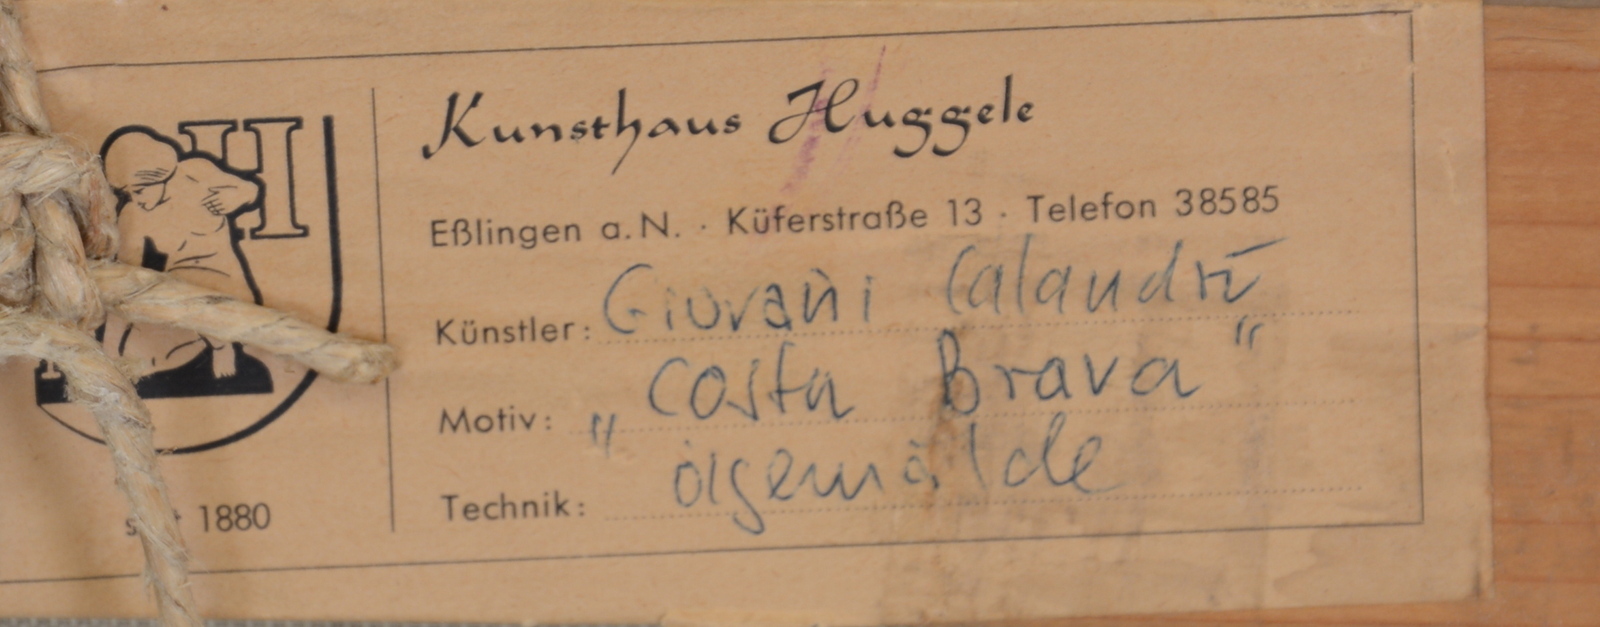 H
Kunsthaus Huggele
Eßlingen a. N. · Küferstraße 13 · Telefon 38585
Künstler: Giovani Calandri
Motiv: „Costa Brava“
Technik: ölgemälde
1880